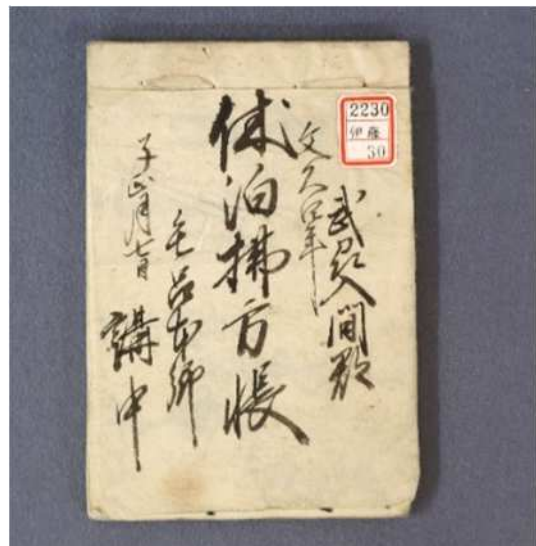 2230
伊藤
30
武州入間郡
文久四年
休泊拂方帳
毛呂本郷
子正月
講中